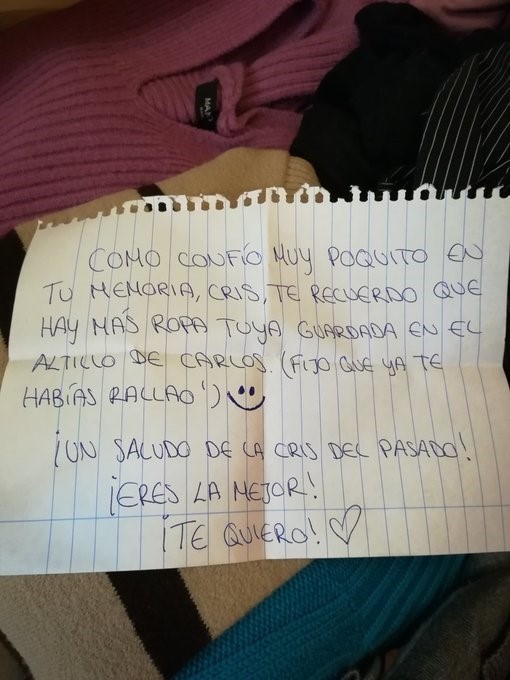 COMO CONFÍO MUY POQUITO EN
TU MEMORIA, CRIS, TE RECUERDO QUE
HAY MÁS ROPA TUYA GUARDADA EN EL
ALTILLO DE CARLOS. (FIJO QUE YA TE
HABÍAS RALLAO')
¡UN SALUDO DE LA CRIS DEL PASADO!
¡ERES LA MEJOR!
¡TE QUIERO!